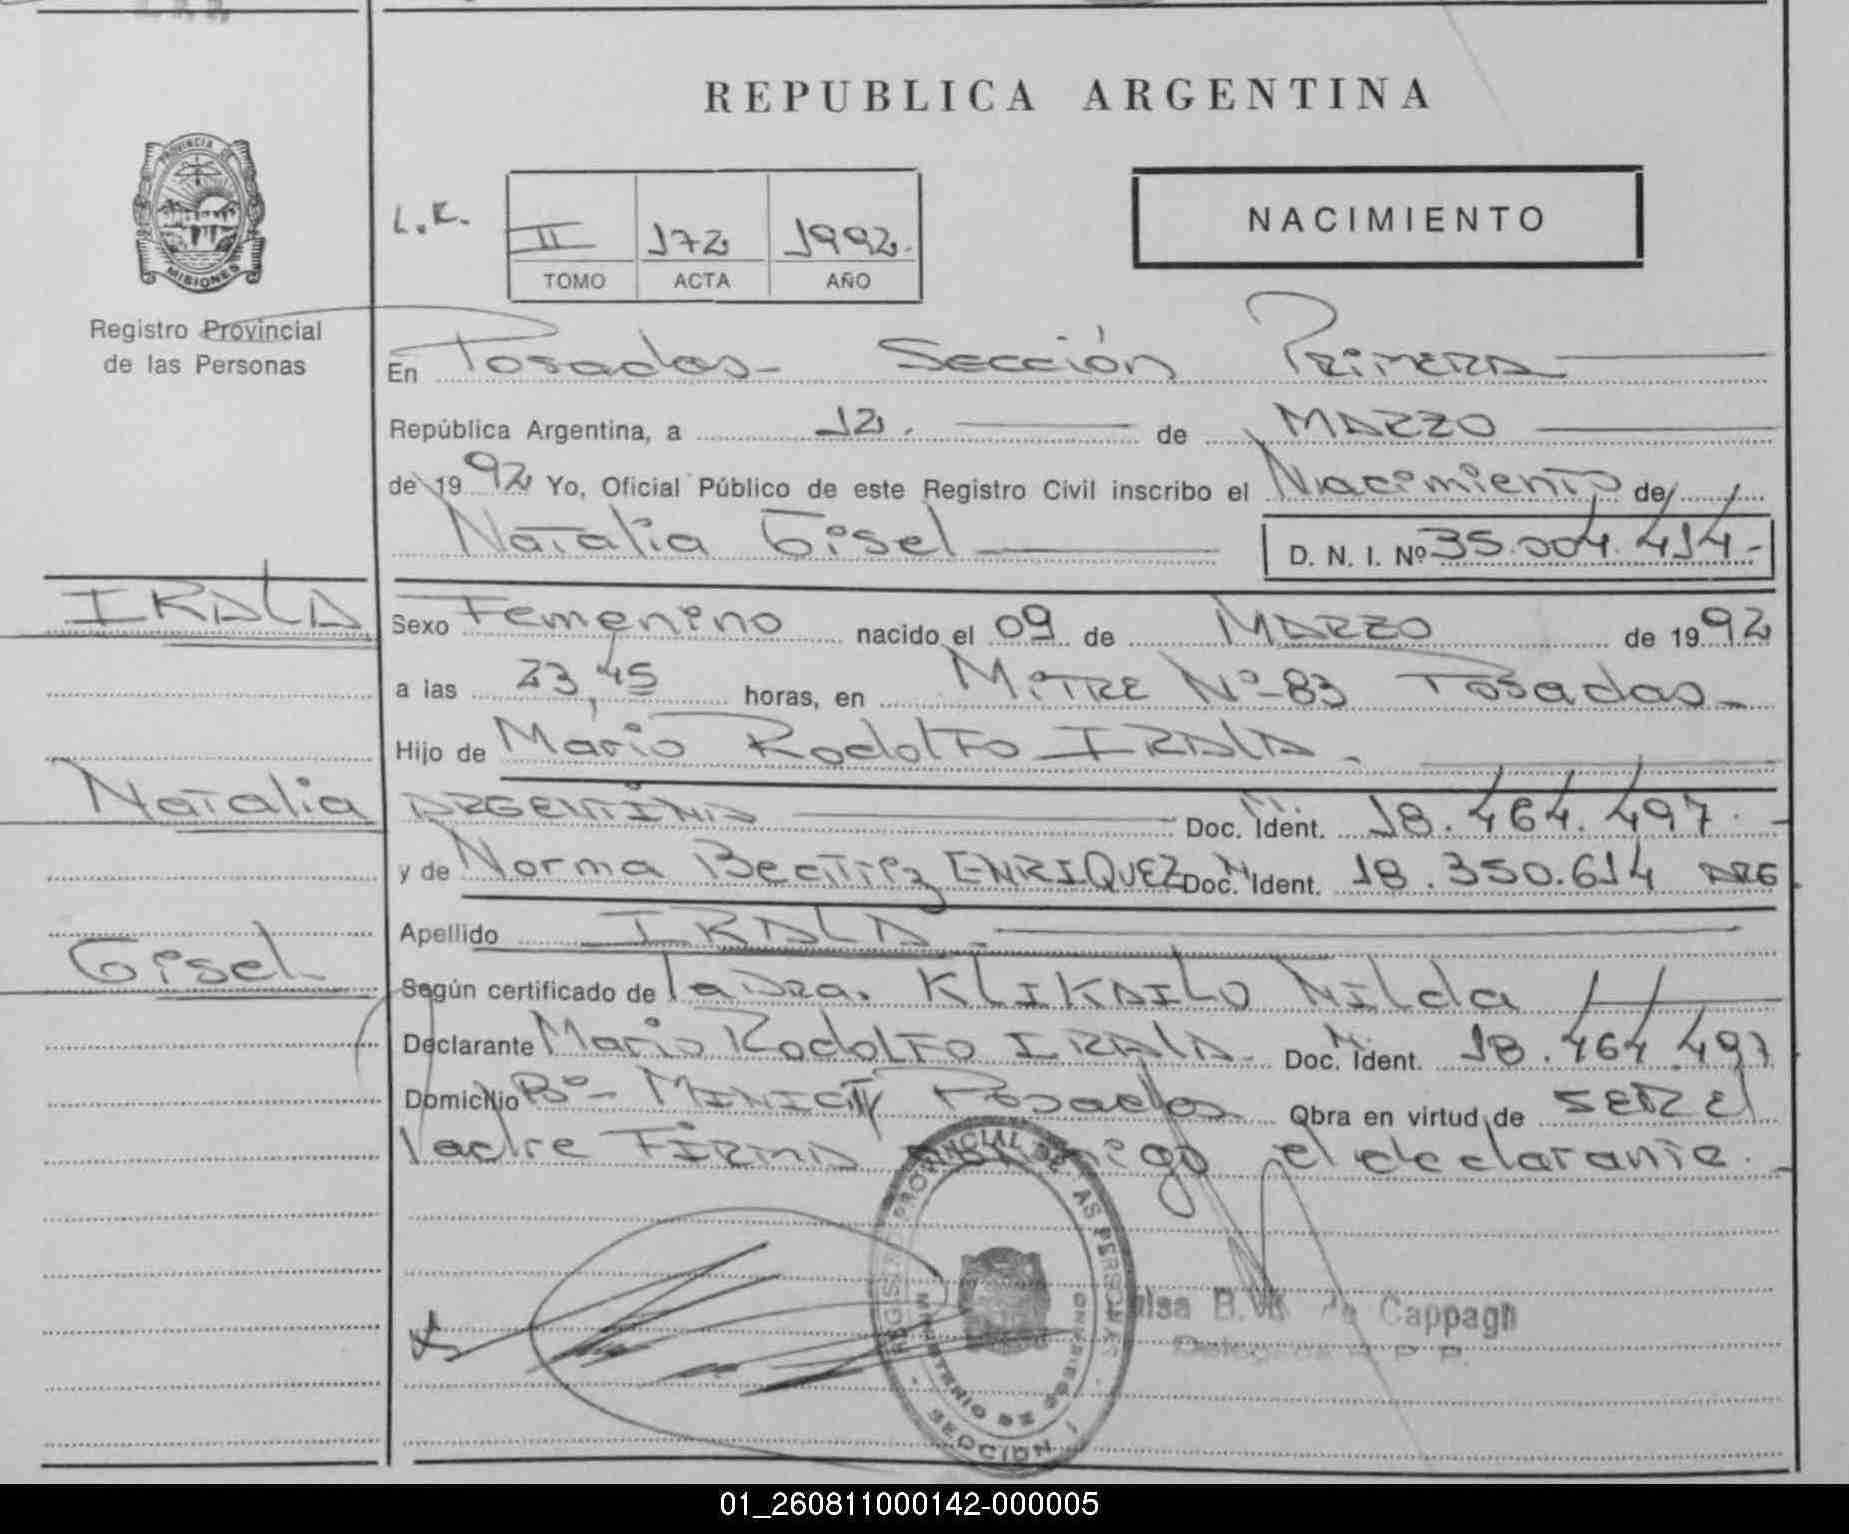 REPUBLICA ARGENTINA
PROVINCIA DE
MISIONES
Registro Provincial
de las Personas
L.R.
II 172 1992.
TOMO ACTA AÑO
NACIMIENTO
En Posadas- Sección Primera
República Argentina, a 12. de MARZO
de 1992 Yo, Oficial Público de este Registro Civil inscribo el Nacimiento de
Natalia Gisel
D. N. I. Nº 35.004.414.-
IRALA
Sexo Femenino nacido el 09 de MARZO de 1992
a las 23,45 horas, en MITRE Nº-83 Posadas-
Hijo de Mario Rodolfo IRALA.
Natalia
ARGENTINA Doc. Ident. M. 18.464.497.-
y de Norma Beatriz ENRIQUEZ Doc. Ident. 18.350.614 ARG.
Apellido IRALA
Gisel
Según certificado de la Dra. KLIKAILO Nilda
Declarante Mario Rodolfo IRALA- Doc. Ident. 18.464.497
Domicilio Bº- MINICITY Posadas Obra en virtud de SER el
Padre FIRMA el declarante.-
REGISTRO PROVINCIAL DE LAS PERSONAS
MINISTERIO DE GOBIERNO
SECCION 1
B. de Cappagh
Delegada R. P. P.
01_260811000142-000005